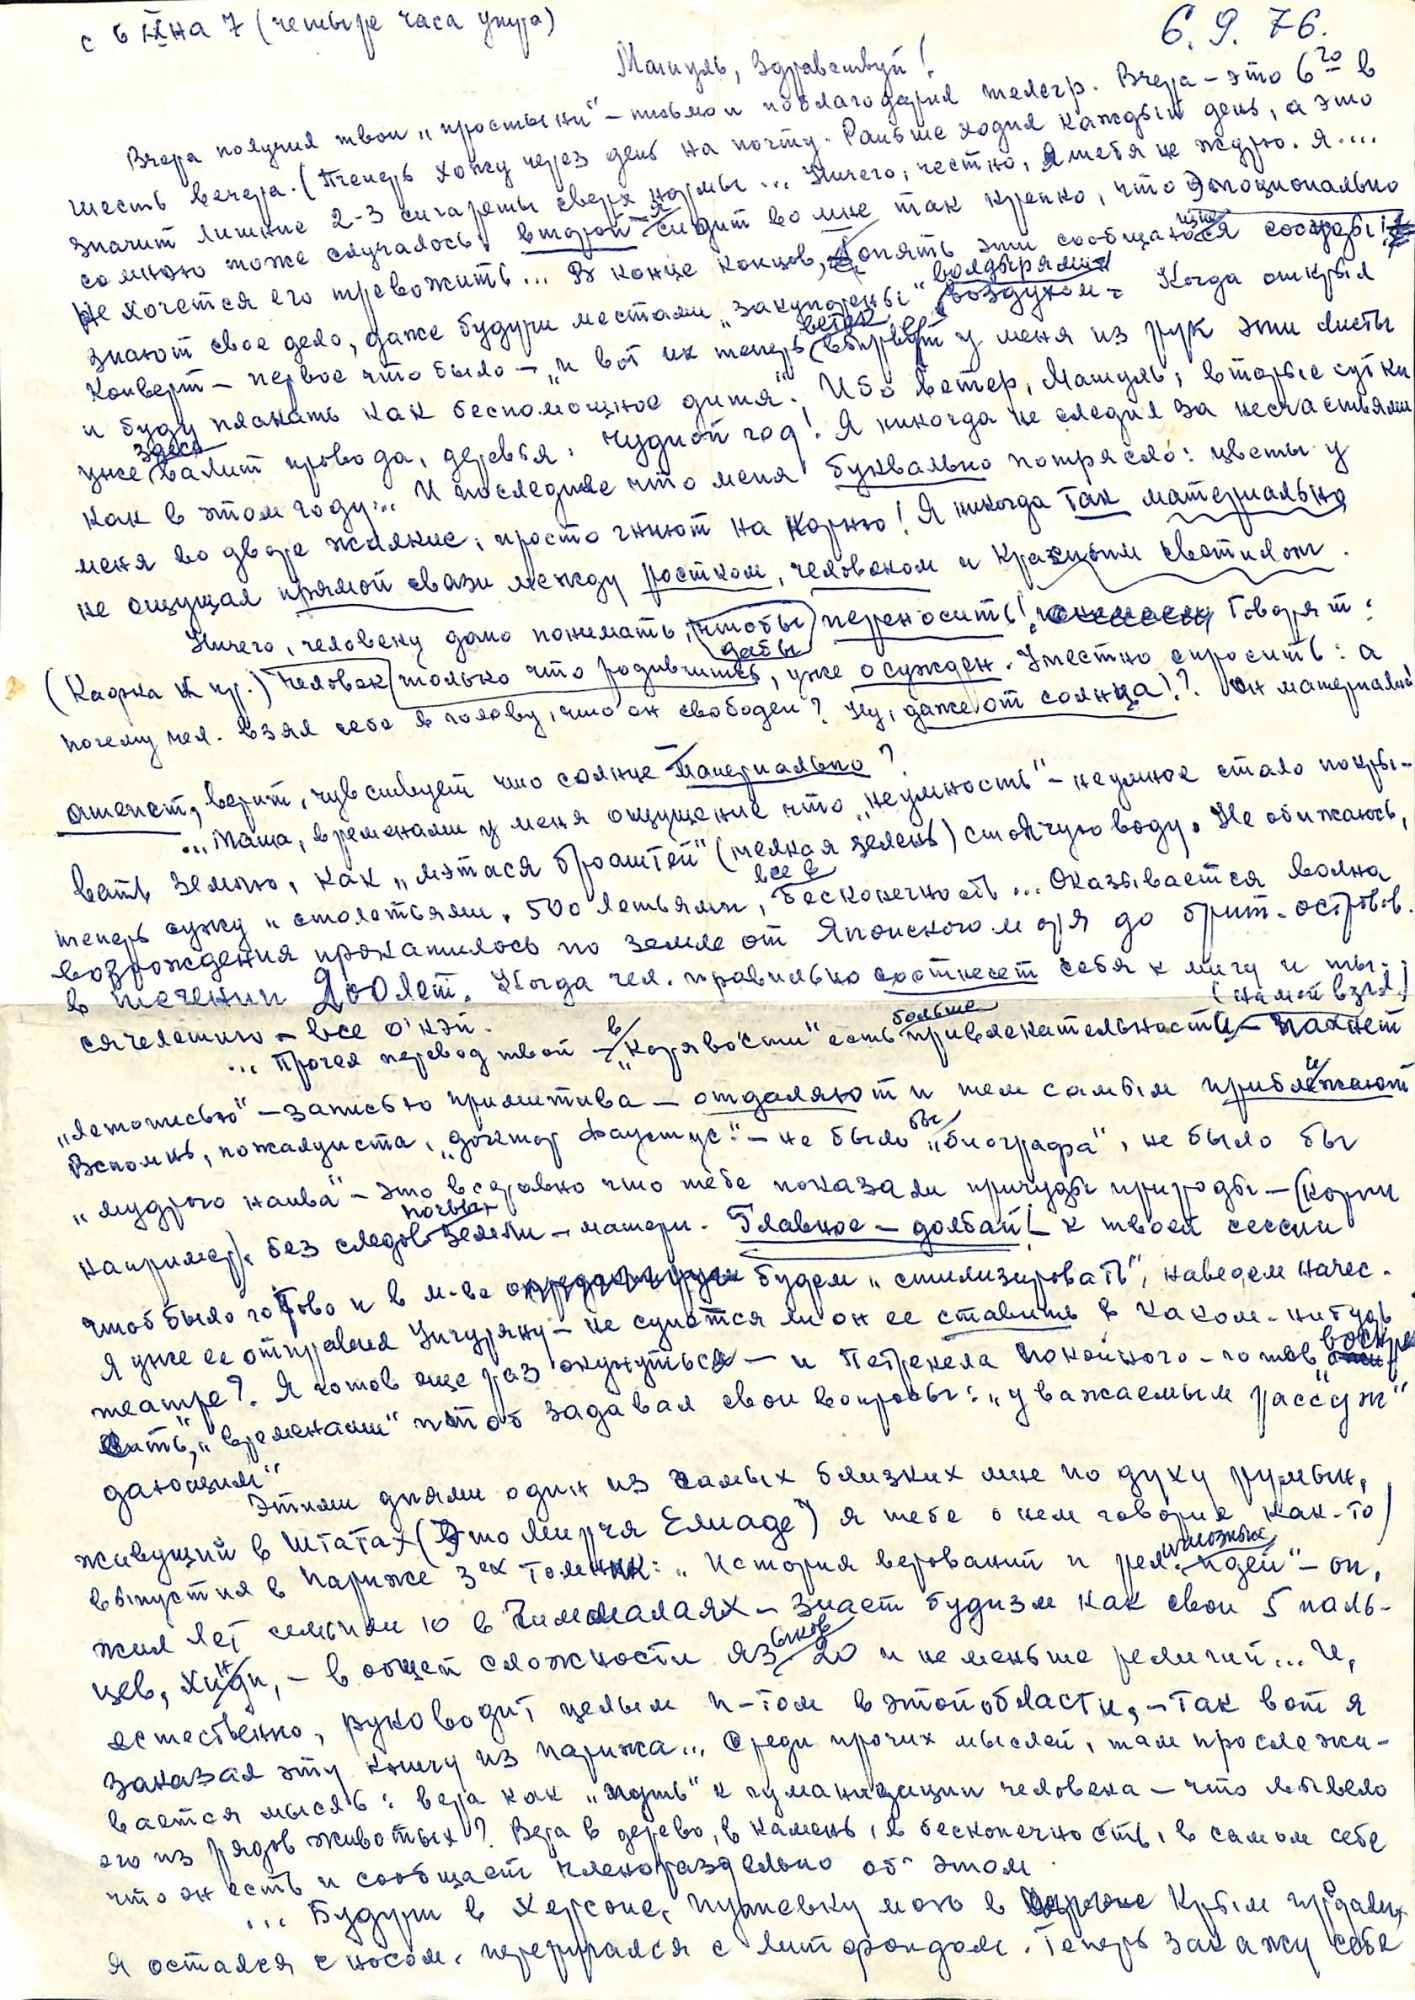 с 6 IX на 7 (четыре часа утра)
6. 9. 76.
Машуль, здравствуй!
Вчера получил твои „простыни" – письмо и поблагодарил телегр. Вчера – это 6го в
шесть вечера. (Теперь хожу через день на почту. Раньше ходил каждый день, а это
значит лишние 2-3 сигареты сверх нормы... Ничего, честно, я тебя не жду. Я....
со мною тоже случалось, второй „я" сидит во мне так крепко, что эмоционально
не хочется его тревожить... В конце концов, опять эти сообщающиеся сосуды
знают свое дело, даже будучи местами „закупорены" волдырями воздухом. Когда открыл
конверт – первое что было – „и вот их теперь ветер вырвет у меня из рук эти листы
и буду плакать как беспомощное дитя". Ибо ветер, Машуль, вторые сутки
уже здесь валит провода, деревья. Чудной год! Я никогда не следил за несчастьями
как в этом году... И последнее что меня буквально потрясло: цветы у
меня во дворе жалкие, просто гниют на корню! Я никогда так материально
не ощущал прямой связи между ростком, человеком и красным светилом.
Ничего, человеку дано понимать, чтобы дабы переносить! Говорят:
(Кафка и пр.) человек только что родившись, уже осужден. Уместно спросить: а
почему чел. взял себе в голову, что он свободен? Ну, даже от солнца!? Он материалист
атеист, верит, чувствует что солнце – материально?
... Маша, временами у меня ощущение что „неумность" – неумное стало покры-
вать землю, как „мэтася броаштей" (мелкая зелень) стоячую воду. Не обижаюсь,
теперь сужу „столетьями, 500 летьями, все в бесконечность... Оказывается волна
возрождения прокатилась по земле от Японского моря до брит. островов.
в течении 200 лет. Когда чел. правильно соотнесет себя к мигу и ты-
сячелетию – все о'кэй.
... Прочел перевод твой – в „корявости" есть больше привлекательности, – (на мой взгл.) пахнет
„летописью" – записью примитива – отдаляют и тем самым приближают
Вспомнь, пожалуйста, „доктор Фаустус" – не было бы „биографа", не было бы
„мудрого наива" – это всеравно что тебе показали причуды природы – (корни
например). без следов почвы земли – матери. Главное – долбай! к твоей сессии
чтоб было готово и в м-ве будем „стилизировать", наведем начес.
Я уже ее отправил Унгуряну – не сунется ли он ее ставить в каком-нибудь
театре? Я готов еще раз окунуться – и Петрекела покойного – готов воскре
сить, „временами" чтоб задавал свои вопросы: „уважаемым рассуж"
дающим"
Этими днями один из самых близких мне по духу румын,
живущий в Штатах (Это Мирча Елиаде) я тебе о нем говорил как-то)
выпустил в Париже 3ех томник: „История верований и религиозных идей" – он,
жил лет семь или 10 в Гималаях – знает будизм как свои 5 паль-
цев, хинди, – в общей сложности языков 20 и не меньше религий... И,
естественно, руководит целым и-том в этой области, – так вот я
заказал эту книгу из Парижа... Среди прочих мыслей, там прослежи-
вается мысль: вера как „путь" к гуманизации человека – что вывело
его из рядов животных? Вера в дерево, в камень, в бесконечность, в самом себе
что он есть и сообщает членораздельно об этом.
... Будучи в Херсоне, путевку мою в Крым продали,
я остался с носом. переругался с литфондом. Теперь закажу себе